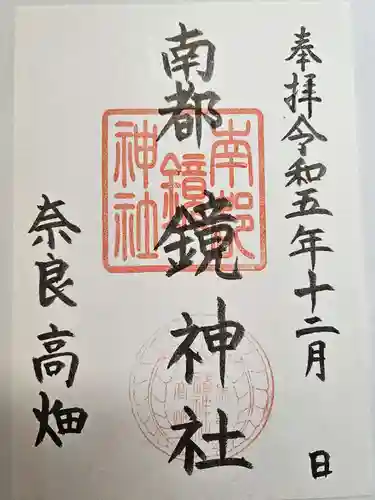 奉拝令和五年十二月 日
南都鏡神社
奈良高畑
南都鏡神社